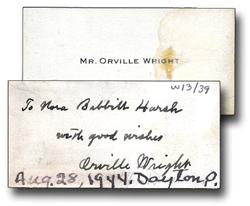 MR. ORVILLE WRIGHT
W13/39
To Nora Babbitt Harsh
with good wishes
Orville Wright
Aug. 28, 1944. Dayton, O.